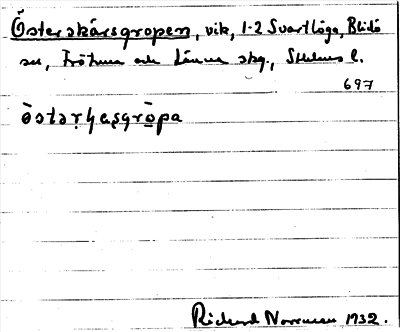 Österskärsgropen, vik, 1-2 Svartlöga, Blidö
sn, Frötuna och Länna skg., Sthlms l.
697
östərʂɧæʂgrōpa
Richard Norrman 1932.